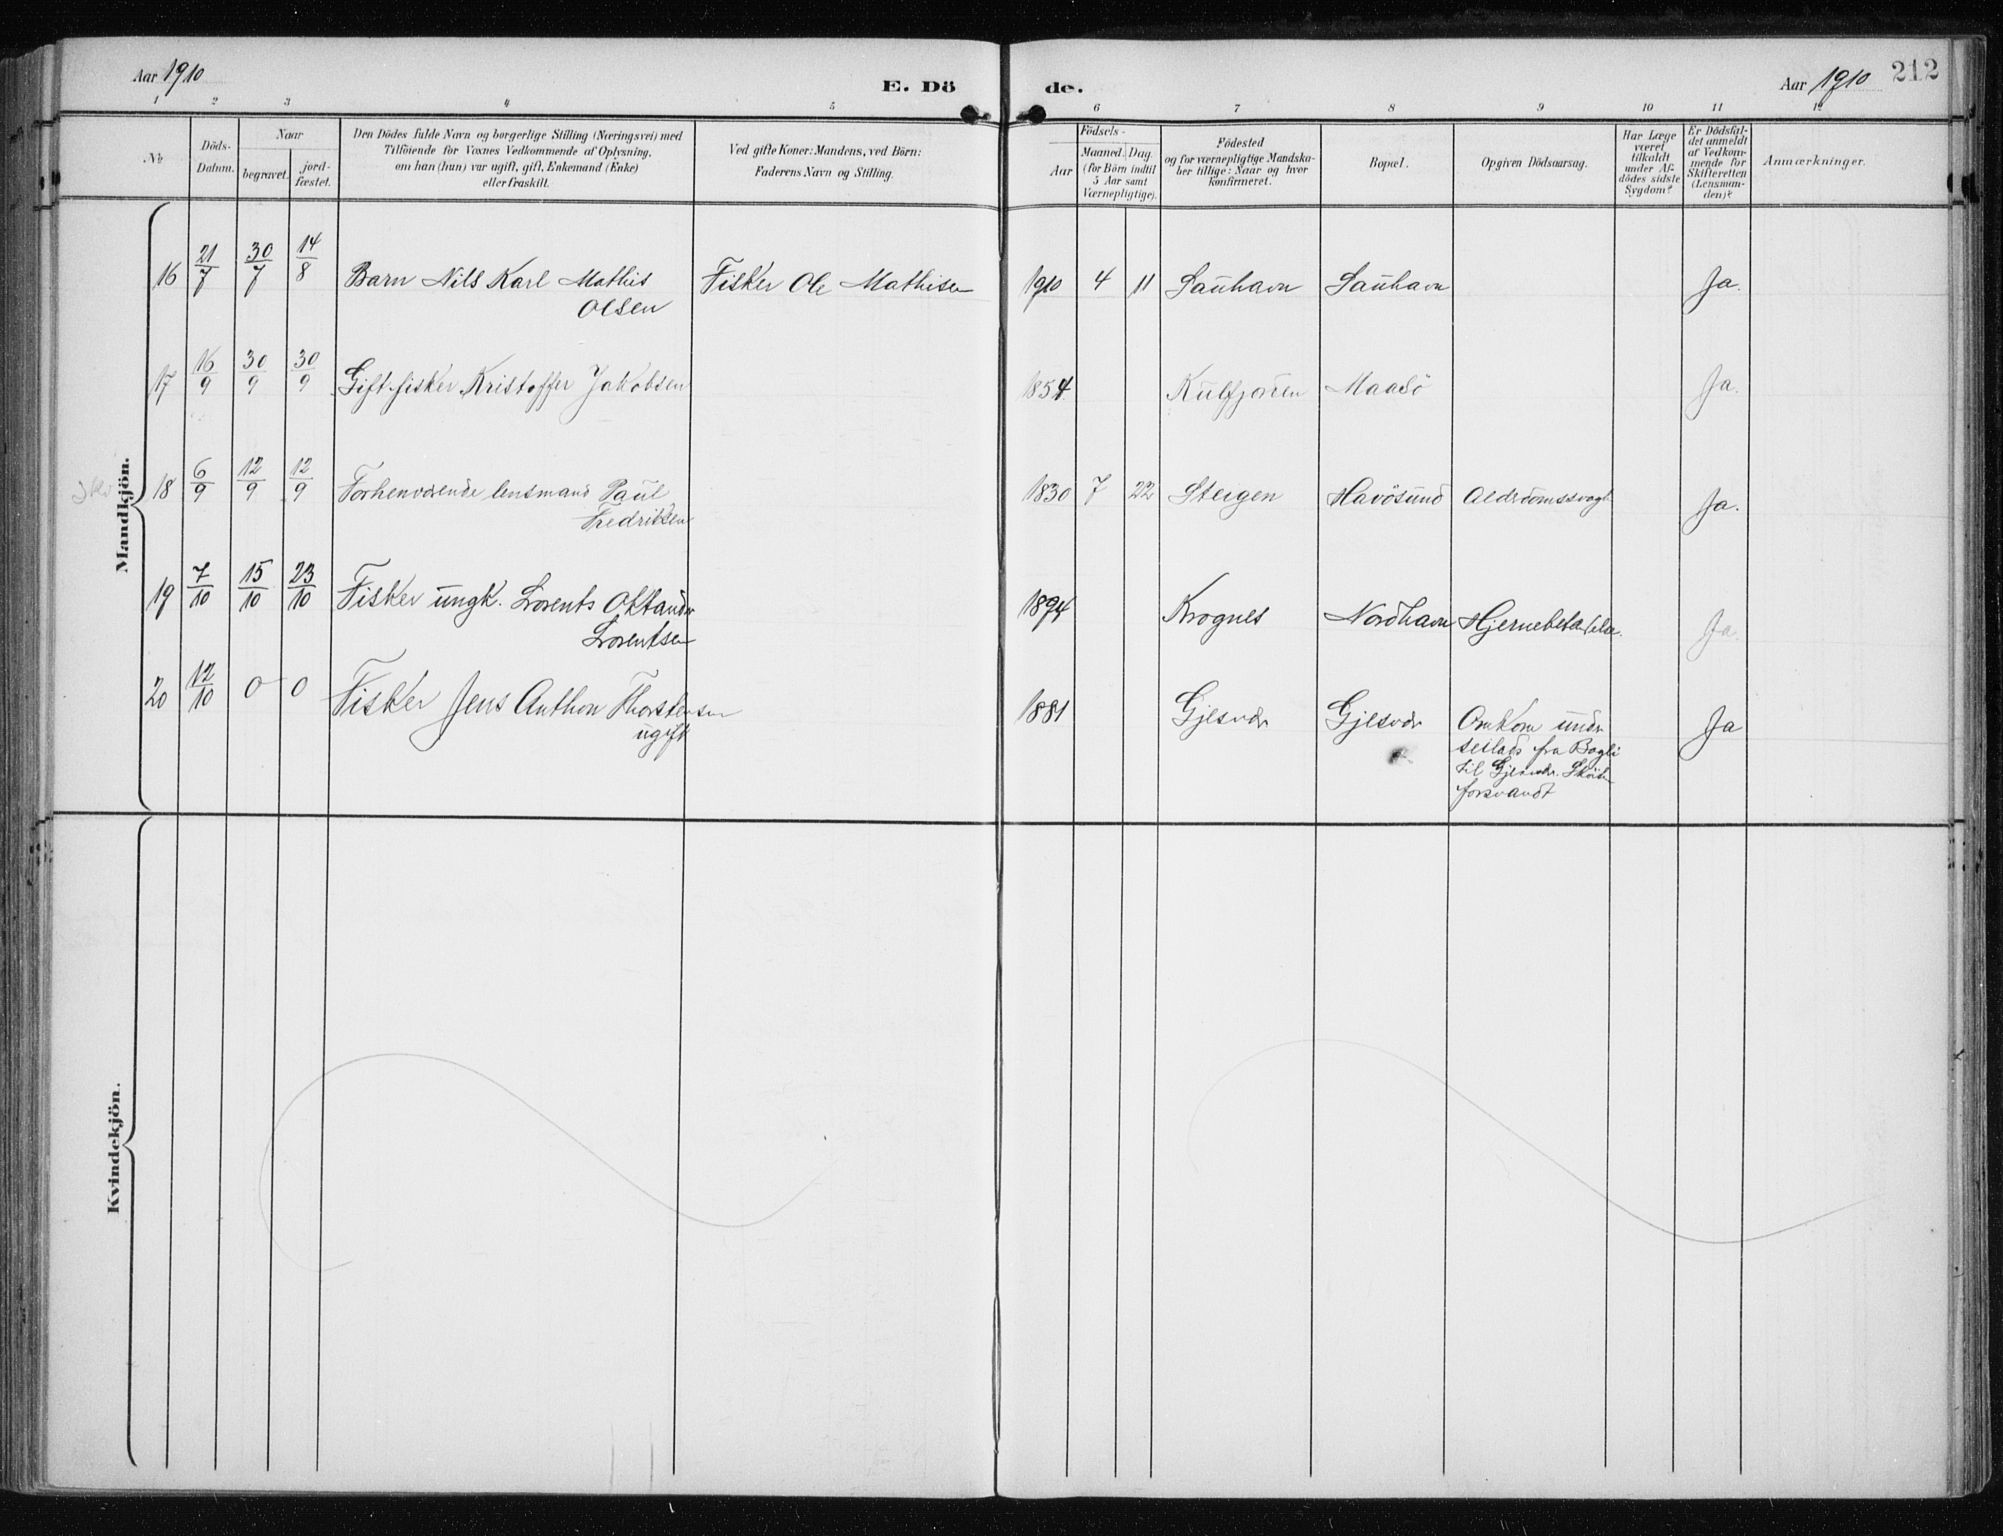 Aar 1910
E. Dö
de.
Aar 1910
212
1 2 3 4 5 6 7 8 9 10 11 12
№
Döds-
Datum.
Naar
begravet.
jord-
fæstet.
Den Dödes fulde Navn og borgerlige Stilling (Næringsvei) med
Tilföiende for Voxnes Vedkommende af Oplysning,
om han (hun) var ugift, gift, Enkemand (Enke)
eller fraskilt.
Ved gifte Koner: Mandens, ved Börn:
Faderens Navn og Stilling.
Födsels-
Aar
Maaned. Dag.
(for Börn indtil
5 Aar samt
Værnepligtige).
Födested
og for værnepligtige Mandska-
ber tillige: Naar og hvor
konfirmeret.
Bopæl.
Opgiven Dödsaarsag.
Har Læge
været
tilkaldt
under Af-
dödes sidste
Sygdom?
Er Dödsfal-
det anmeldt
af Vedkom-
mende for
Skifteretten
(Lensman-
den)?
Anmærkninger.
Mandkjön.
16 21/7 30/7 14/8 Barn Nils Karl Mathis Fisker Ole Mathisen 1910 4 11 Sauhavn Sauhavn Ja.
Olsen
17 16/9 30/9 30/9 Gift fisker Kristoffer Jakobsen 1854 Kulfjorden Maasö Ja.
18 6/9 12/9 12/9 Forhenværende lensmand Paul 1830 7 22 Steigen Havösund Alderdomssvagh Ja.
Fredriksen
19 7/10 15/10 23/10 Fisker ungk. Lorents Oktander 1894 Krognes Nordhavn Hjernebetændelse. Ja
Lorentsen
20 12/10 0 0 Fisker Jens Anthon Thorstensen 1881 Gjesvær Gjesvær Omkom under Ja
ugift
seilads fra Bogli
til Gjesvær. Sköiten
forsvandt
Kvindekjön.